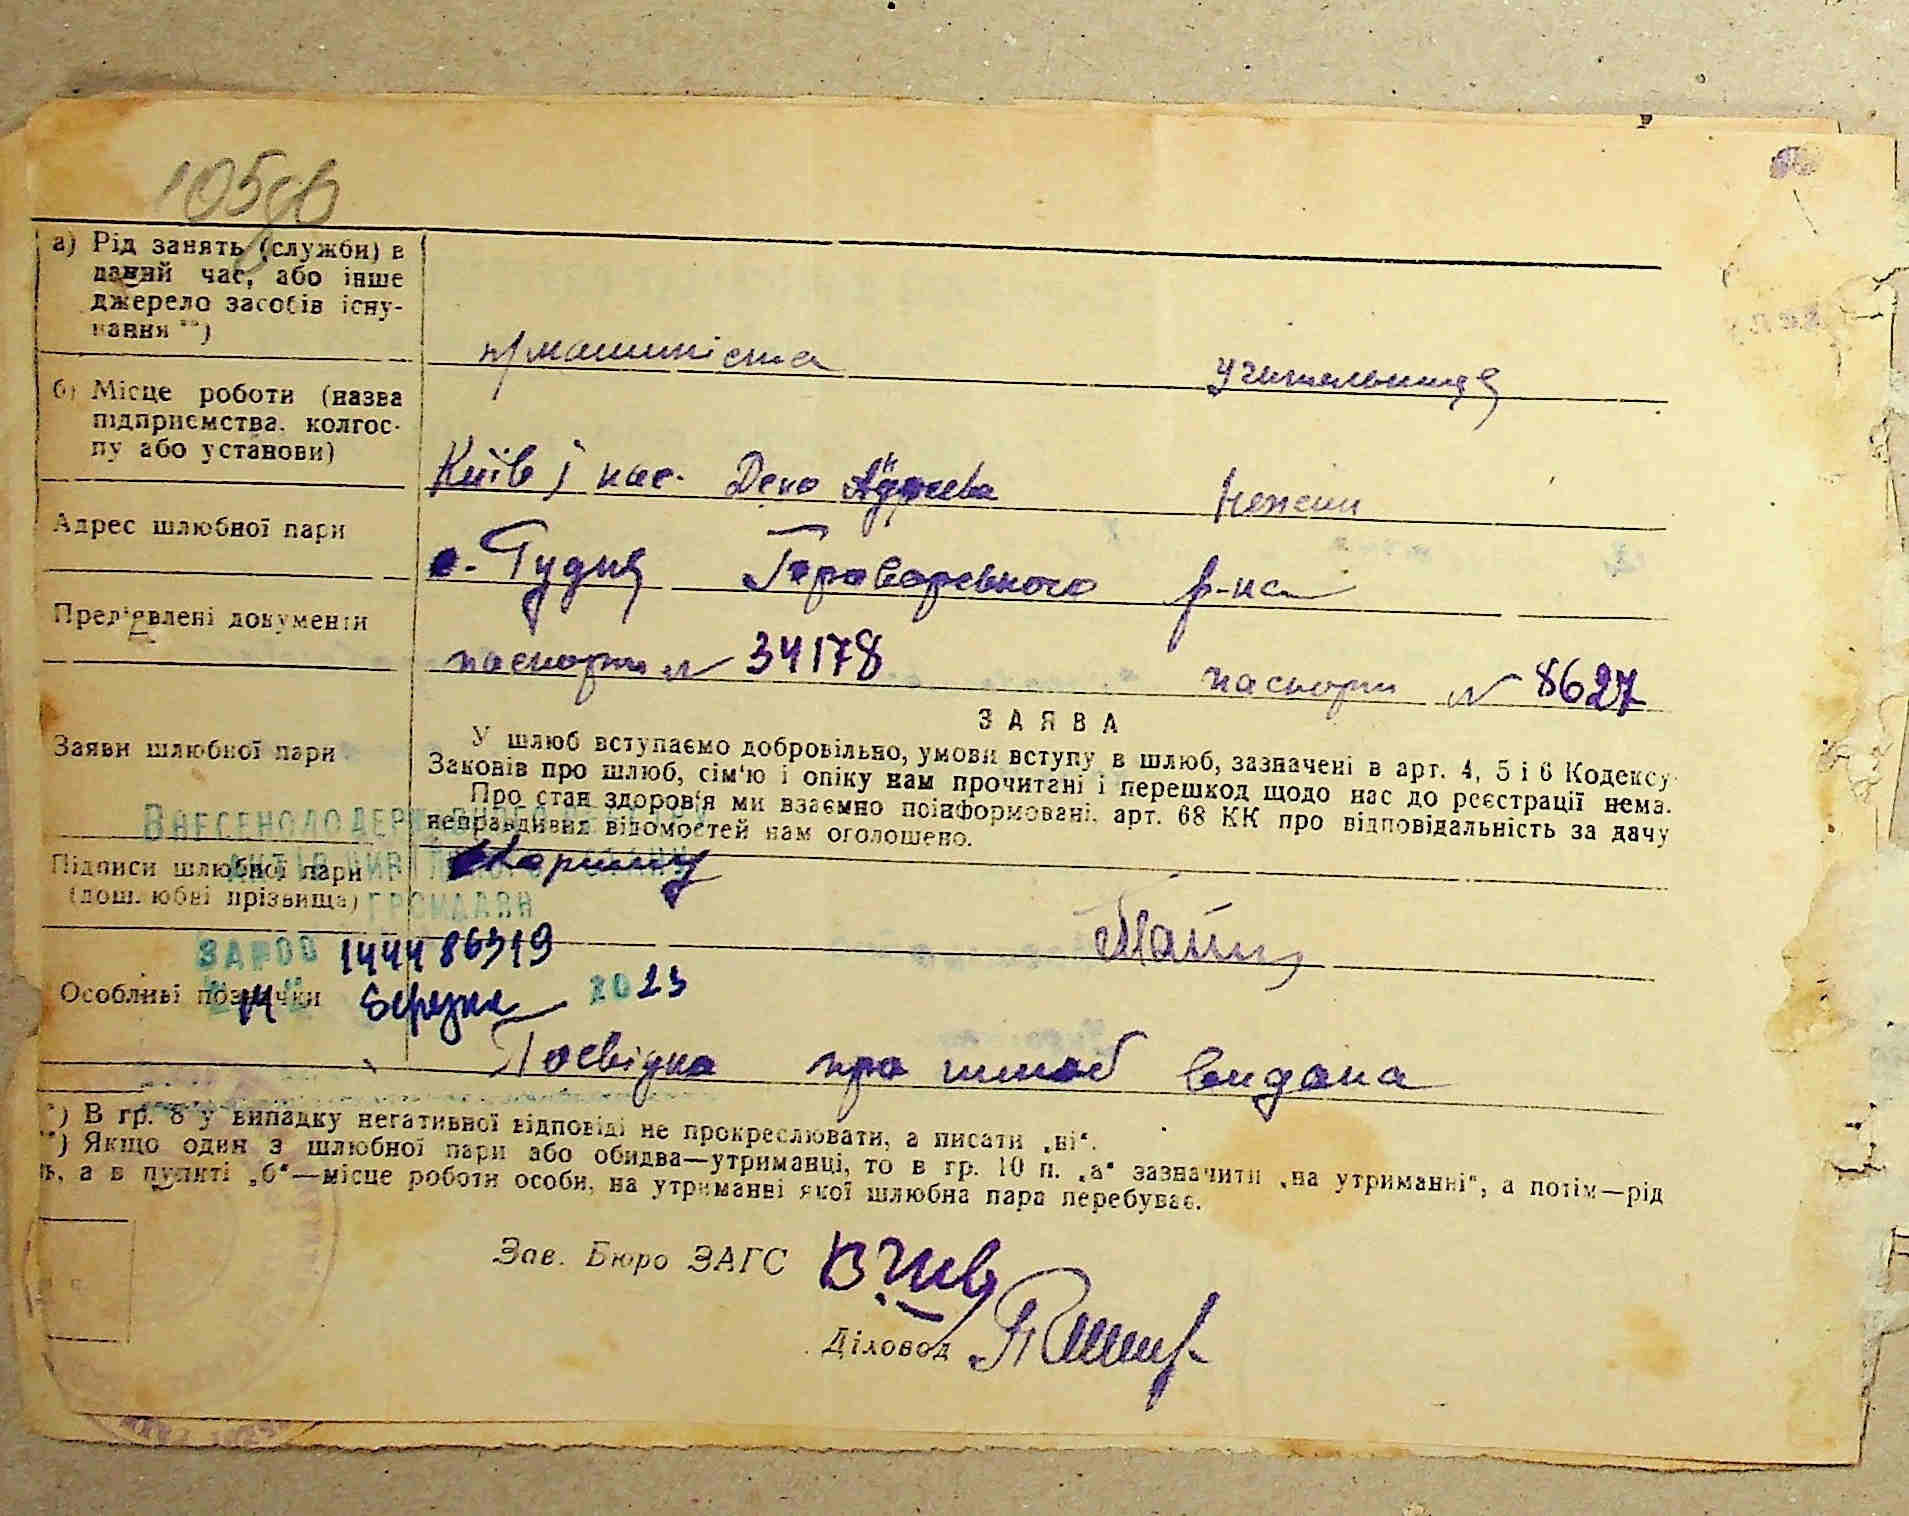 105
а) Рід занять (служби) в
даний час, або інше
джерело засобів існу-
вання **)
машиніста учительниця
б) Місце роботи (назва
підприємства, колгос-
пу або установи)
Київ І пас. Депо
Адрес шлюбної пари
с. р-на
Пред'явлені документи
паспорт № 34178 паспорт № 8627
Заяви шлюбної пари
ЗАЯВА
У шлюб вступаємо добровільно, умови вступу в шлюб, зазначені в арт. 4, 5 і 6 Кодексу
Законів про шлюб, сім'ю і опіку нам прочитані і перешкод щодо нас до реєстрації нема.
Про стан здоров'я ми взаємно поінформовані, арт. 68 КК про відповідальність за дачу
неправдивих відомостей нам оголошено.
Внесено до Державного реєстру
актів цивільного стану
громадян
Підписи шлюбної пари
(дошлюбні прізвища)
14448 6319
14 березня 2023
Особливі позначки
Посвідка про шлюб видана
*) В гр. 8 у випадку негативної відповіді не прокреслювати, а писати „ні“.
**) Якщо один з шлюбної пари або обидва—утриманці, то в гр. 10 п. „а“ зазначити „на утриманні“, а потім—рід
а в пункті „б“—місце роботи особи, на утриманні якої шлюбна пара перебуває.
Зав. Бюро ЗАГС
Діловод